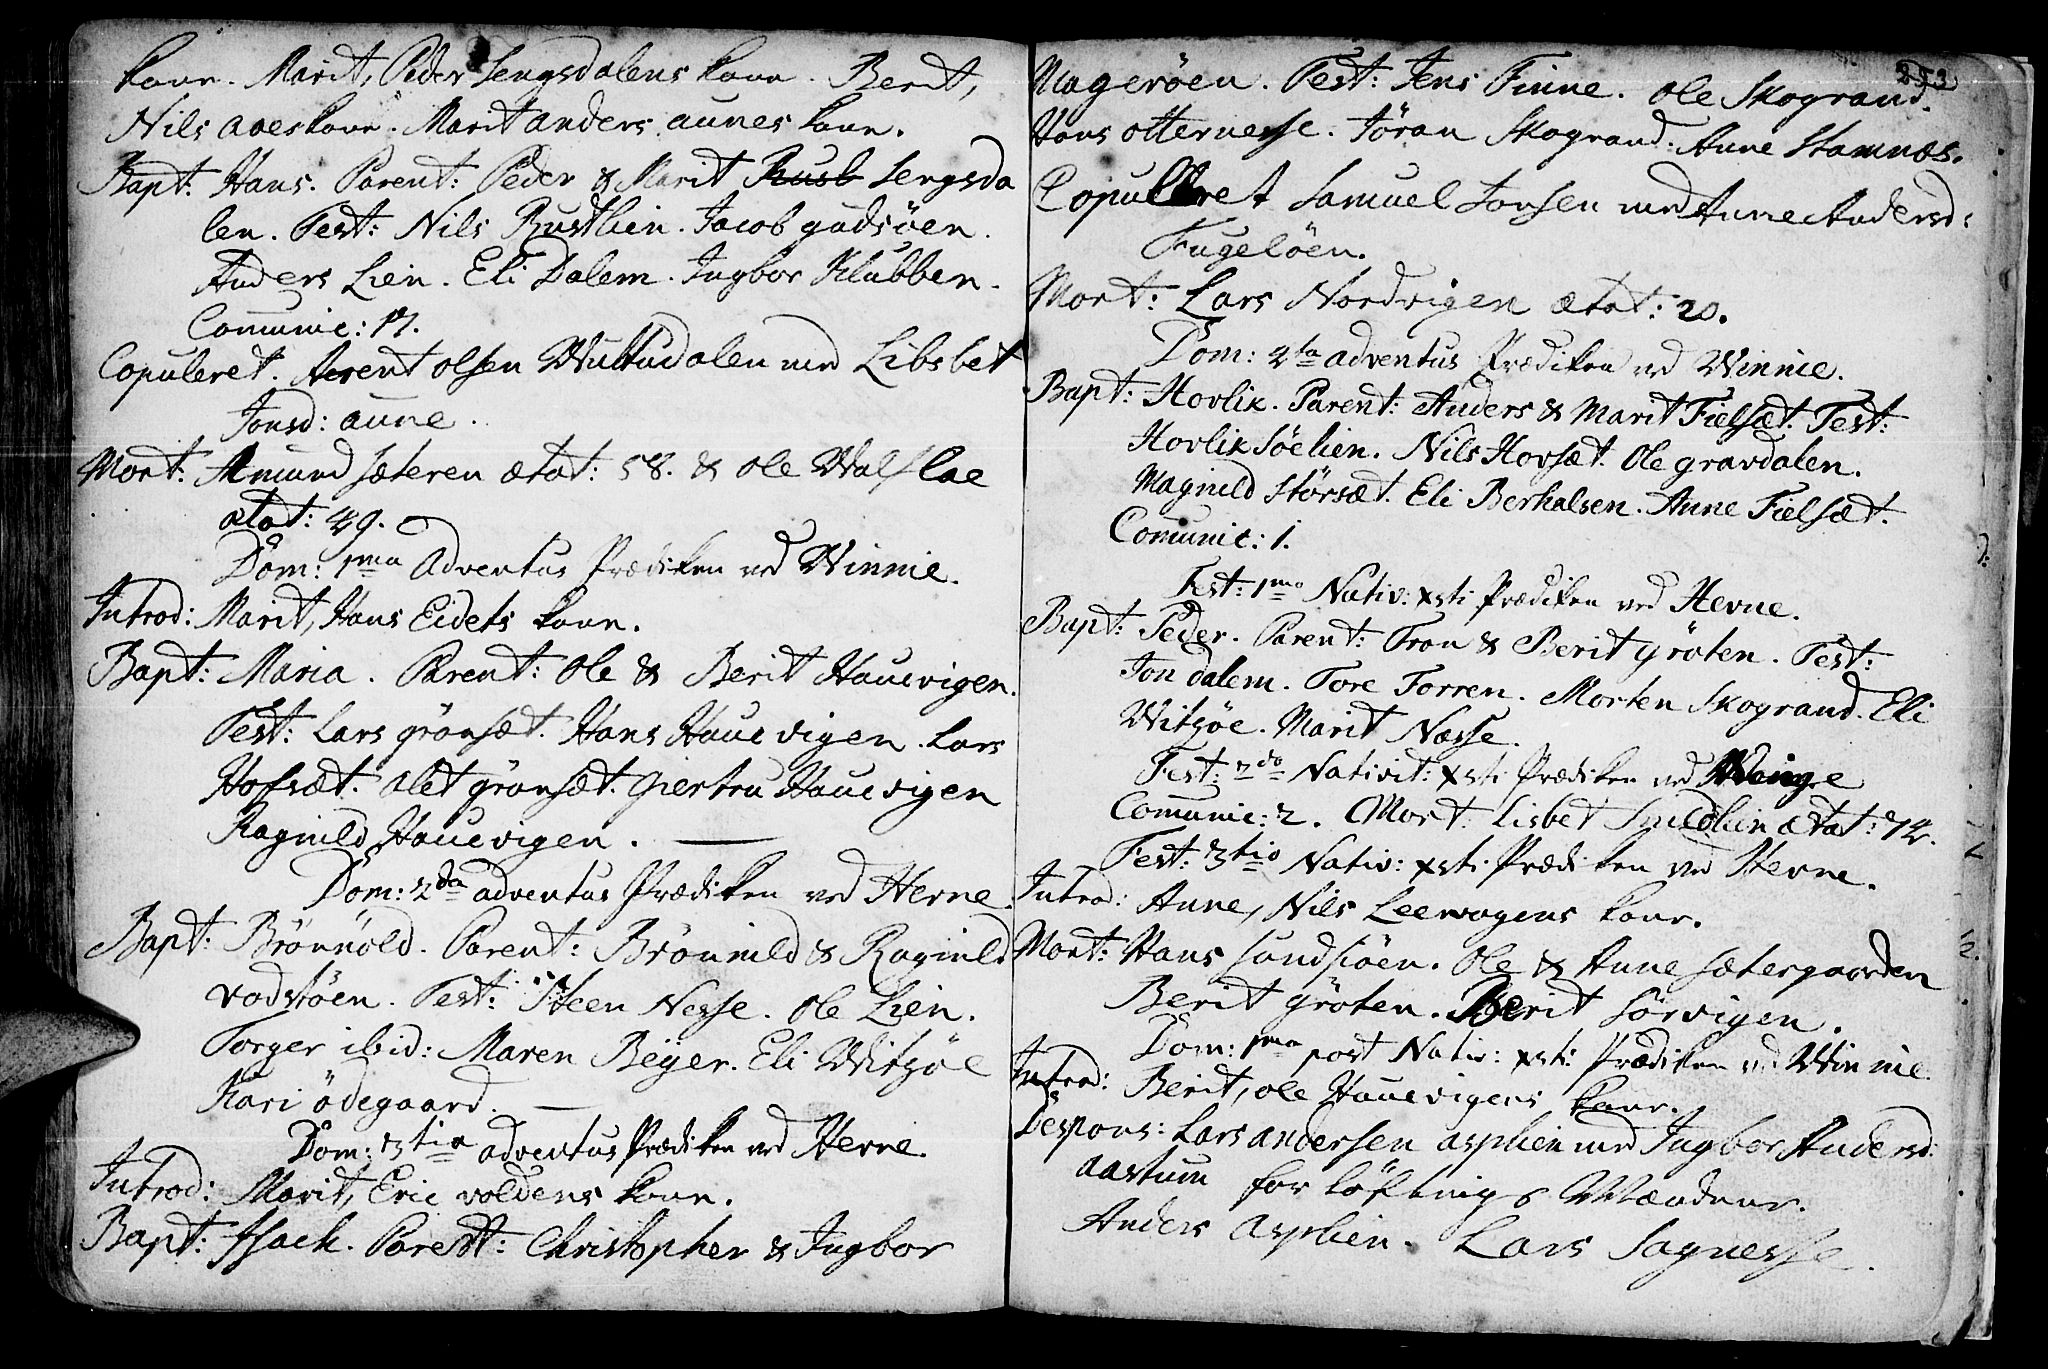 kone. Marit, Peder Lengsdalens kone. Berit,
Nils Aaes kone. Marit Anders Aunes kone.
Bapt: Hans. Parent: Peder & Marit Lengsda
len. Test: Nils Rustlien. Jacob gudsöen.
Anders Lien. Eli Dalem. Ingbor Klubben.
Comunic: 17.
Copuleret. Arent olsen Wuttudalen med Libsbet
Jonsd: aune.
Mort: Amund sæteren ætat: 58. & Ole Walslae
ætat: 49.
Dom: 1ma Adventus Prædiken ved Winnie.
Introd: Marit, Hans Eidets kone.
Bapt: Maria. Parent: Ole & Berit Hauevigen.
Test: Lars grönsæt. Hans Hauevigen. Lars
Hofsæt. Olet grönsæt. giertru Hauevigen
Ragnild Hauevigen.
Dom: 2da adventus Prædiken ved Herne.
Bapt: Brönnold. Parent: Brönnild & Ragnild
vadstöen. Test: Steen Nesse. Ole Lien.
Torger ibid: Maren Beÿer. Eli Witzöe
Kari ödegaard.
Dom: 3tia adventus Prædiken ved Herne.
Introd: Marit, Eric voldens kone.
Bapt: Isach. Parent: Christopher & Ingbor
253
Mageröen. Test: Jens Finne. Ole Skogrand.
Hans otternesse. Jöran Skogrand. Anne Stamnes.
Copuleret Samuel Jonsen med Anne Andersd:
Fugelöen.
Mort: Lars Nordvigen ætat: 20.
Dom: 4ta adventus Prædiken ved Winnie.
Bapt: Hovlik. Parent: Anders & Marit Fielsæt. Test:
Hovlik Söelien. Nils Hovsæt. Ole gravdalen.
Magnild Störsæt. Eli Berhalsen. Anne Fielsæt.
Comunic: 1.
Fest: 1mo Nativ: xsti Prædiken ved Hevne.
Bapt: Peder. Parent: Tron & Berit gröten. Test:
Jon dalem. Tore Torren. Morten Skogrand. Eli
Witzöe. Marit Næsse.
Fest: 2do Nativit: xsti Prædiken ved Winje
Comunic: 2. Mort: Lisbet Snildlien ætat: 74.
Fest: 3tio Nativ: xsti Prædiken ved Hevne.
Introd: Anne, Nils Leervagens kone.
Mort: Hans sundsöen. Ole & Anne sætergaarden
Berit gröten. Berit sörvigen.
Dom: 1ma post Nativ: xsti Prædiken ved Winnie.
Introd: Berit, Ole Hauevigens kone.
Despons: Lars andersen asplien med Ingbor Andersd:
aastum forlöftnings Mændene.
Anders asplien. Lars Sagnesse.